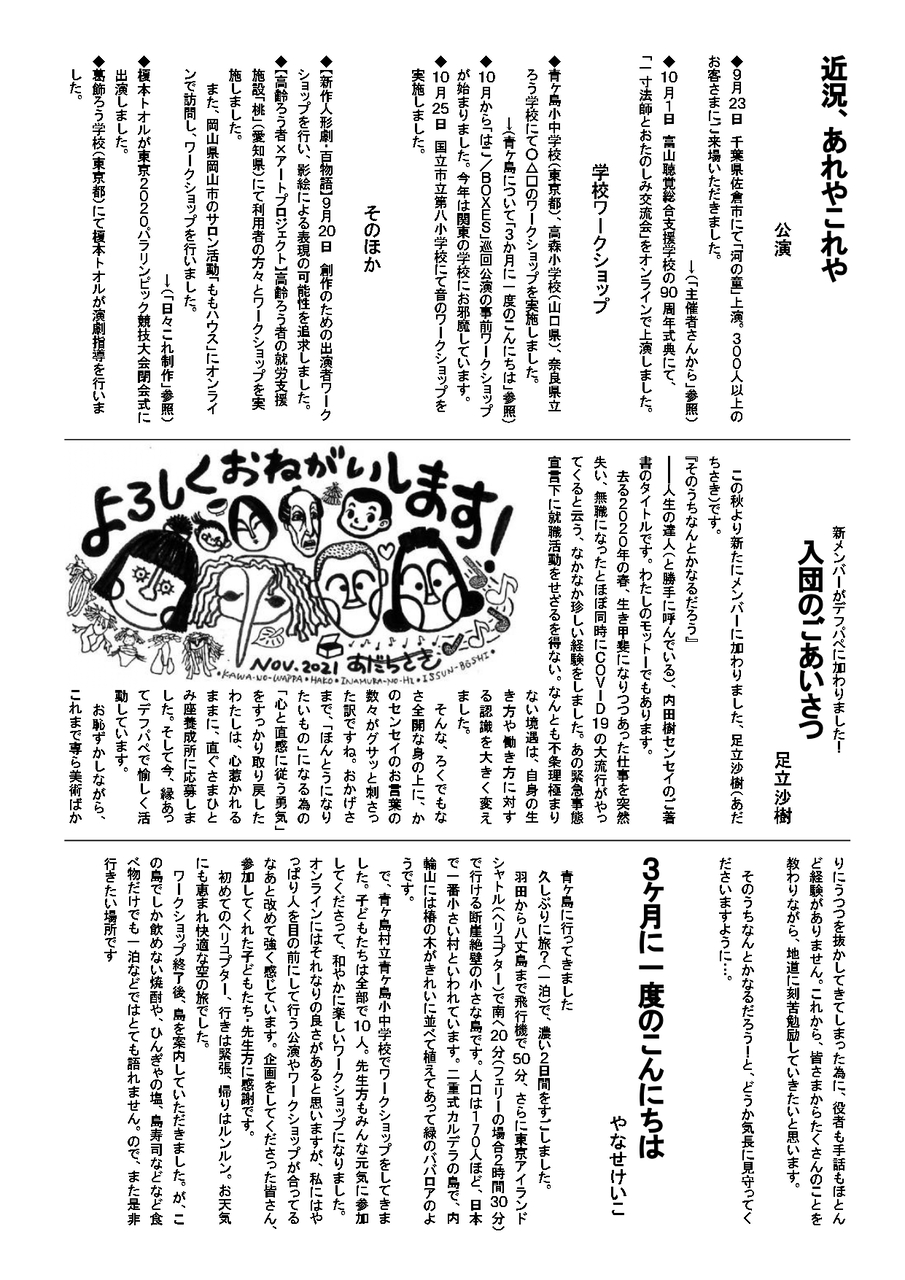 近況、あれやこれや
公演
◆9月23日　千葉県佐倉市にて「河の童」上演。300人以上の
お客さまにご来場いただきました。
→(「主催者さんから」参照)
◆10月1日　富山聴覚総合支援学校の90周年式典にて、
「一寸法師とおたのしみ交流会」をオンラインで上演しました。
学校ワークショップ
◆青ヶ島小中学校(東京都)、高森小学校(山口県)、奈良県立
ろう学校にて〇△□のワークショップを実施しました。
→(青ヶ島について「3か月に一度のこんにちは」参照)
◆10月から「はこ/BOXES」巡回公演の事前ワークショップ
が始まりました。今年は関東の学校にお邪魔しています。
◆10月25日　国立市立第八小学校にて音のワークショップを
実施しました。
そのほか
◆【新作人形劇・百物語】9月20日　創作のための出演者ワーク
ショップを行い、影絵による表現の可能性を追求しました。
◆【高齢ろう者×アートプロジェクト】高齢ろう者の就労支援
施設「桃」(愛知県)にて利用者の方々とワークショップを実
施しました。
また、岡山県岡山市のサロン活動「ももハウス」にオンライ
ンで訪問し、ワークショップを行いました。
→(「日々これ制作」参照)
◆榎本トオルが東京2020パラリンピック競技大会閉会式に
出演しました。
◆葛飾ろう学校(東京都)にて榎本トオルが演劇指導を行いま
した。
新メンバーがデフパペに加わりました!
入団のごあいさつ
足立沙樹
この秋より新たにメンバーに加わりました、足立沙樹(あだ
ちさき)です。
『そのうちなんとかなるだろう』
――人生の達人(と勝手に呼んでいる)、内田樹センセイのご著
書のタイトルです。わたしのモットーでもあります。
去る2020年の春、生き甲斐になりつつあった仕事を突然
失い、無職になったとほぼ同時にCOVID19の大流行がやっ
てくると云う、なかなか珍しい経験をしました。あの緊急事態
宣言下に就職活動をせざるを得ない。なんとも不条理極まり
ない境遇は、自身の生
き方や働き方に対す
る認識を大きく変え
ました。
そんな、ろくでもな
さ全開な身の上に、か
のセンセイのお言葉の
数々がグサッと刺さっ
た訳ですね。おかげさ
まで、「ほんとうになり
たいもの」になる為の
「心と直感に従う勇気」
をすっかり取り戻した
わたしは、心惹かれる
ままに、直ぐさまひと
み座養成所に応募しま
した。そして今、縁あっ
てデフパペで愉しく活
動しています。
お恥ずかしながら、
これまで専ら美術ばか
よろしくおねがいします!
NOV.2021 あだちさき
・KAWA-NO-WAPPA・HAKO・INAMURA-NO-HI・ISSUN-BOSHI・
りにうつつを抜かしてきてしまった為に、役者も手話もほとん
ど経験がありません。これから、皆さまからたくさんのことを
教わりながら、地道に刻苦勉励していきたいと思います。
そのうちなんとかなるだろう!と、どうか気長に見守ってく
ださいますように…。
3ヶ月に一度のこんにちは
やなせけいこ
青ヶ島に行ってきました
久しぶりに旅?(一泊)で、濃い2日間をすごしました。
羽田から八丈島まで飛行機で50分、さらに東京アイランド
シャトル(ヘリコプター)で南へ20分(フェリーの場合2時間30分)
で行ける断崖絶壁の小さな島です。人口は170人ほど、日本
で一番小さい村といわれています。二重式カルデラの島で、内
輪山には椿の木がきれいに並べて植えてあって緑のババロアのよ
うです。
で、青ヶ島村立青ヶ島小中学校でワークショップをしてきま
した。子どもたちは全部で10人。先生方もみんな元気に参加
してくださって、和やかに楽しいワークショップになりました。
オンラインにはそれなりの良さがあると思いますが、私にはや
っぱり人を目の前にして行う公演やワークショップが合ってる
なあと改めて強く感じています。企画をしてくださった皆さん、
参加してくれた子どもたち・先生方に感謝です。
初めてのヘリコプター、行きは緊張、帰りはルンルン。お天気
にも恵まれ快適な空の旅でした。
ワークショップ終了後、島を案内していただきました。が、こ
の島でしか飲めない焼酎や、ひんぎゃの塩、島寿司などなど食
べ物だけでも一泊などではとても語れません。ので、また是非
行きたい場所です